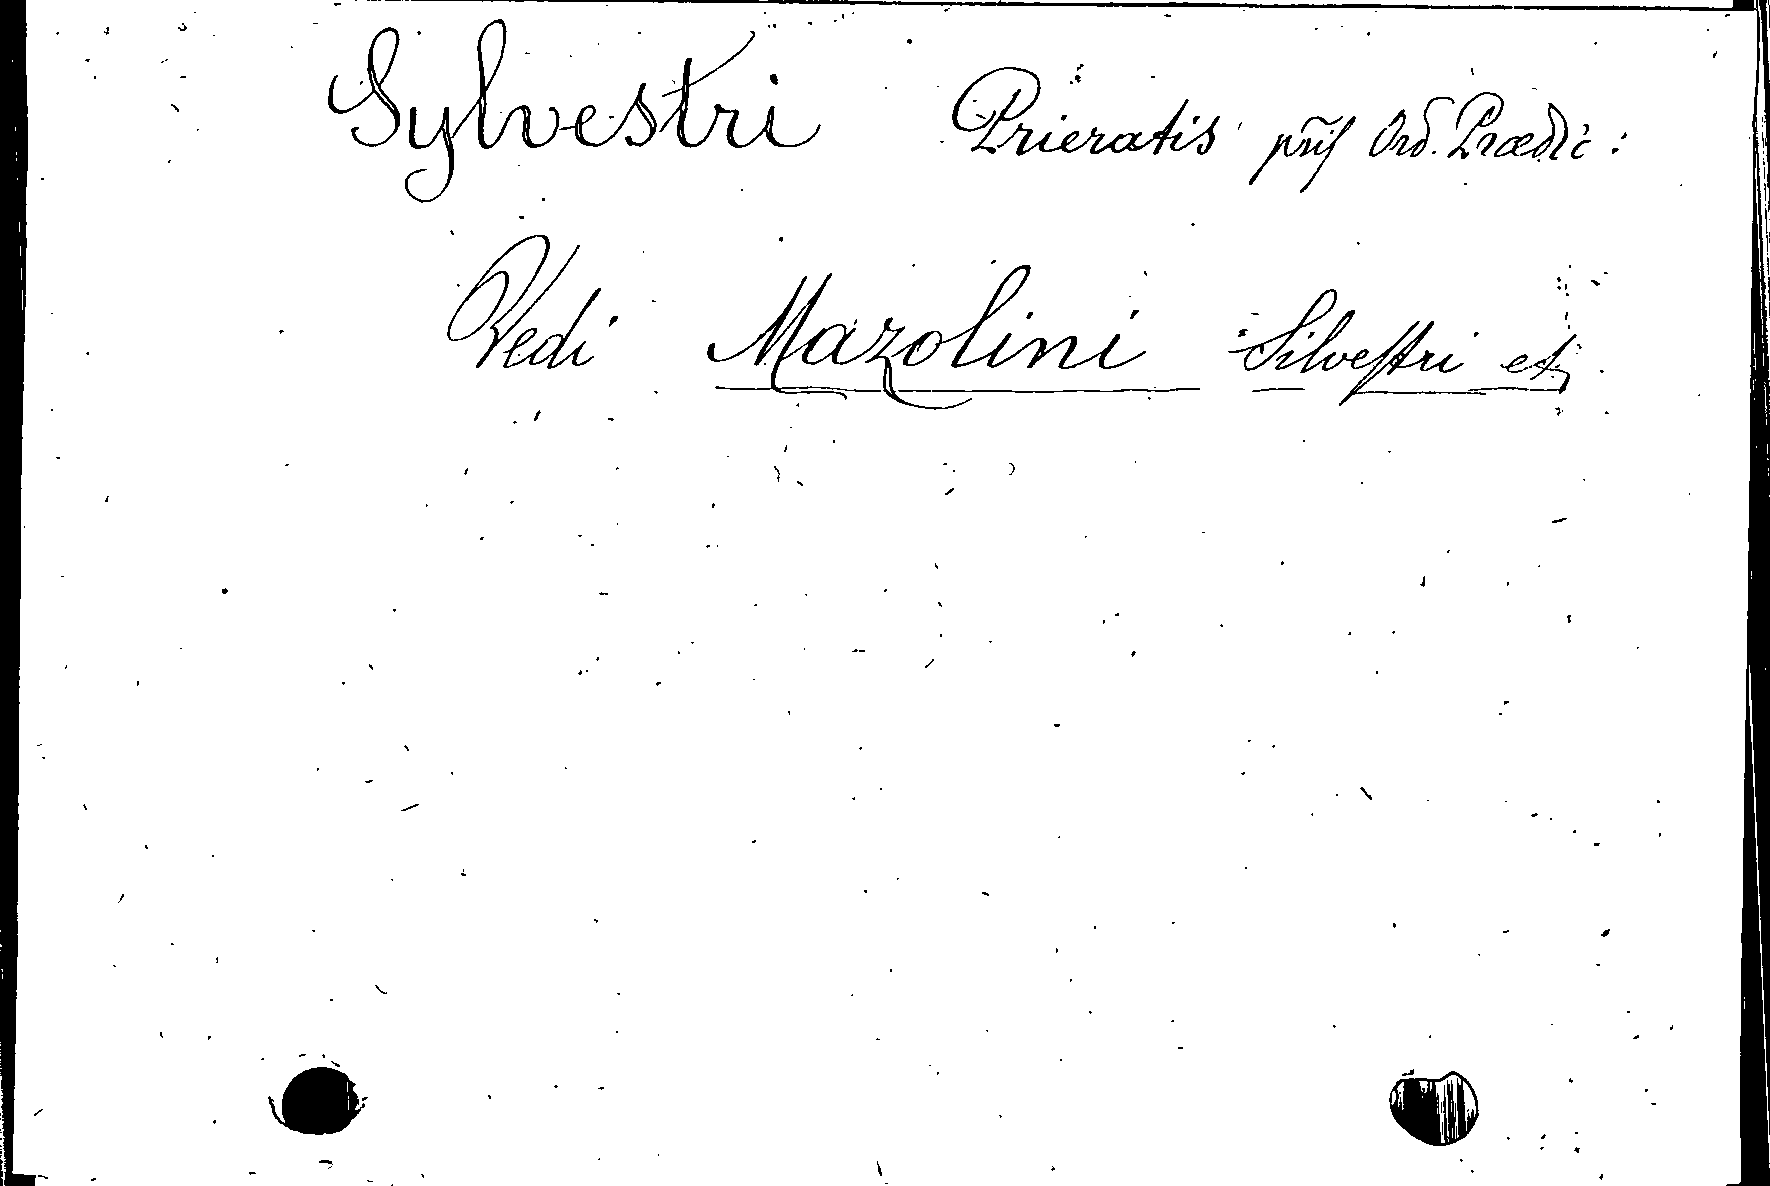 Sylvestri Prieratis pñs Ord. Prædic:
Vedi Mazolini Silvestri et